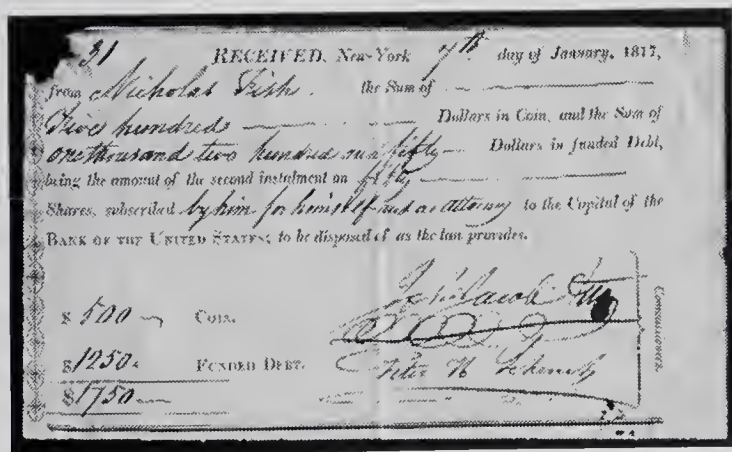 31 RECEIVED, New-York 7th day of January, 1817,
from Nicholas Fish. the Sum of
Five hundred Dollars in Coin, and the Sum of
one thousand two hundred and fifty Dollars in funded Debt,
being the amount of the second instalment on fifty
Shares, subscribed by him for himself and as attorney to the Capital of the
BANK OF THE UNITED STATES; to be disposed of as the law provides.
$ 500 COIN.
$ 1250 FUNDED DEBT.
$ 1750
Peter H Schenck
Commissioners.